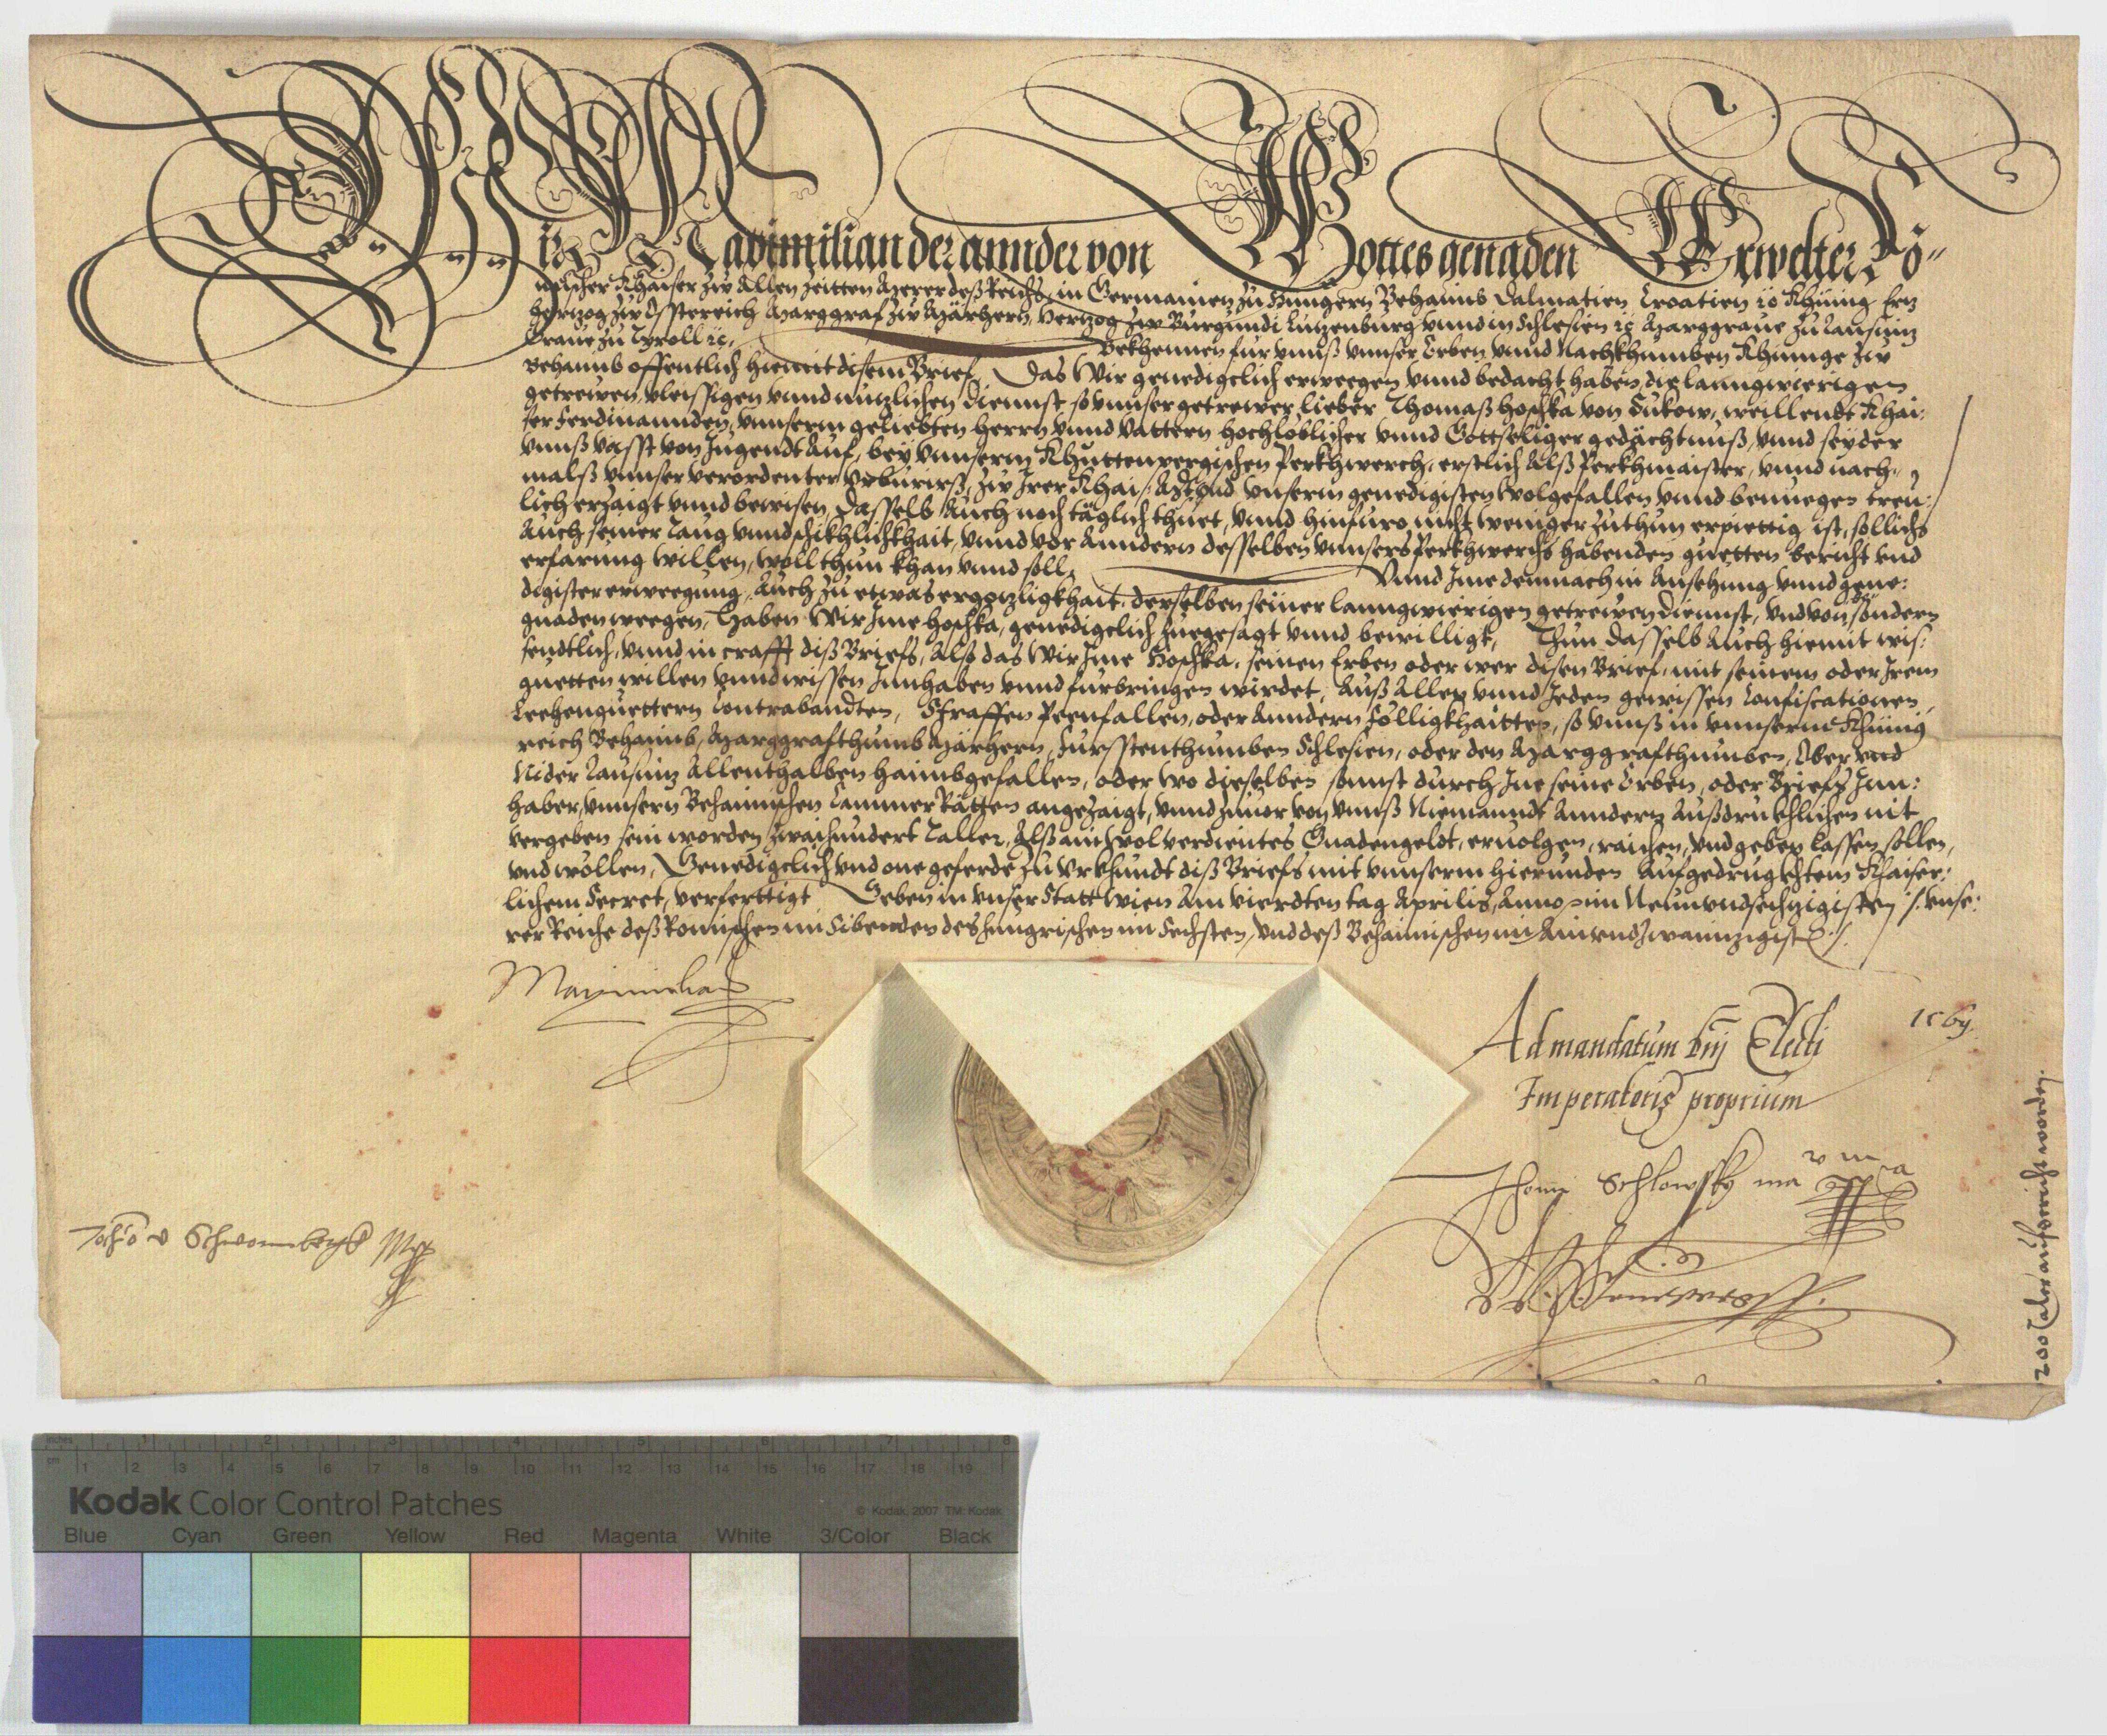 Wir Maximilian der annder von Gottes genaden Erwelter Rö-
mischer Khaiser zw Allen zeitten Merer deß Reichs, in Germanien zu Hungern Behaimb Dalmatien Croatien ic Khünig Ertz
hertzog zw Össterreich Marggraf zw Märhern, Hertzog zw Burgundi Lutzenburg vnnd in Schlesien ic Marggraue zu Lausnitz
Graue zu Tyroll ic. Bekhennen für vnnß vnnser Erben vnnd Nachkhumben Khunige zw
Behaimb offentlich hiemit disem Brief, Das Wir genedigclich erweegen vnnd bedacht haben, die lanngwierigen
getrewen vleissigen vnnd nutzlichen diennst so vnnser getrewer lieber Thomaß Hoschka von Sukow, weillendt Khai:
ser Ferdinannden, vnnserm geliebten Herrn vnnd Vattern hochloblicher vnnd Gottseliger gedächtnuß, vnnd seyder
vnnß vasst von Jugendt Auf, bey vnnserm Khuttenpergischen Perkhwerch, erstlich Alß Perkhmaister, vnnd nach:
malß vnnser verordenter Vrburirß, zw Irer Khai: Mt vnd vnserm genedigisten wolgefallen vnnd benuegen treu:
lich erzaigt vnnd bewisen, Dasselb Auch noch täglich thuet, vnnd hinfuro nicht weniger zuthun erpiettig ist, sollichs
Auch seiner Taug vnnd schikhlichkhait, vnnd vor Anndern desselben vnnsers Perkhwerchs habenden guetten bericht vnd
erfarung willen, woll thun khan vnnd soll, Vnnd Ime demnach in Ansehung vnnd gene:
digister erweegung, Auch zu etwas ergotzligkhait, derselben seiner lanngwierigen getrewen diennst, vnd von sondern
gnaden weegen, Haben Wir Ime Hoschka, genedigclich zuegesagt vnnd bewilligt, Thun dasselb Auch hiemit wis:
sendtlich, vnnd in crafft diß Briefs, Alß das Wir Ime Hoschka, seinen Erben oder wer disen Brief, mit seinem oder Irem
guetten willen vnnd wissen Innhaben vnnd furbringen wirdet, Auß Allen vnnd Jeden gewissen Confiscationen,
Leehenguettern Contrabandten, Straffen Peenfallen, oder Anndern Fölligkhaitten, so vnnß in vnnserm Khünig
reich Behaimb, Marggrafthumb Märhern, Furstenthumben Schlesien, oder den Marggrafthumben, Ober vnd
Nider Lausnitz Allenthalben haimbgefallen, oder wo dieselben sonnst durch Ine seine Erben, oder Briefs Inn:
haber, vnnsern Behaimischen Cammer Rätten angezaigt, vnnd zuuor von vnnß Niemanndt Anndern Außdrukhlichen nit
vergeben sein worden, zwaihundert Taller, Alß ain wol verdientes Gnadengeldt, eruolgen, raichen, vnd geben lassen sollen,
vnd wöllen, Genedigclich vnd one geferde, zu Vrkhundt diß Briefs mit vnnserm hierunden Aufgedrugkhtem Khaiser:
lichem Secret, verferttigt Geben in vnser Statt Wien Am vierdten tag Aprilis, Anno im Neunvndsechtzigisten /. vnse:
rer Reiche deß Romischen im Sibennden des Hungrischen im Sechsten, vnd deß Behaimischen im Ainvndzwanntzigist /.
Maximilian
Ad mandatum dni Electi
Imperatoris proprium
1569
v Schwamberg
200 Taler ausgericht worden.
inches 1 2 3 4 5 6 7 8
cm 1 2 3 4 5 6 7 8 9 10 11 12 13 14 15 16 17 18 19
Kodak Color Control Patches
© Kodak, 2007 TM: Kodak
Blue Cyan Green Yellow Red Magenta White 3/Color Black